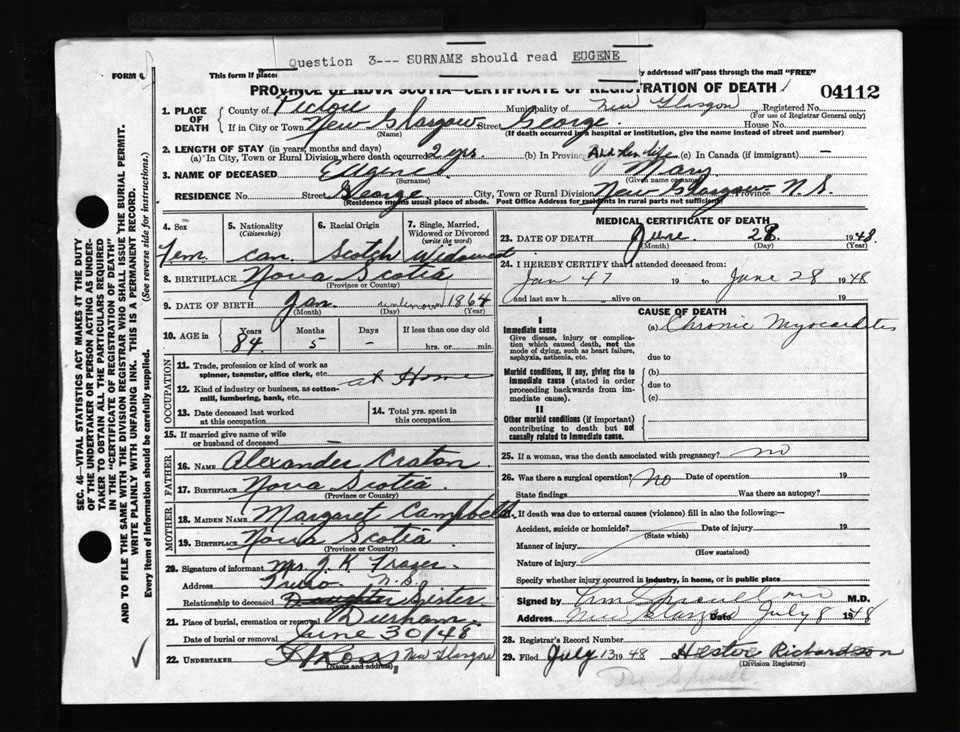 Question 3--- SURNAME should read EUGENE
FORM
This form if placed
ly addressed will pass through the mail "FREE"
PROVINCE OF NOVA SCOTIA—CERTIFICATE OF REGISTRATION OF DEATH
04112
1. PLACE OF DEATH
County of Pictou Municipality of New Glasgow Registered No.
(For use of Registrar General only)
If in City or Town New Glasgow Street George House No.
(Name) (If death occurred in a hospital or institution, give the name instead of street and number)
2. LENGTH OF STAY (in years, months and days)
(a) In City, Town or Rural Division where death occurred 2 yrs. (b) In Province All her life (c) In Canada (if immigrant) —
3. NAME OF DECEASED Eugene Mary
(Surname) (Given name or names)
RESIDENCE No. Street George City, Town or Rural Division New Glasgow Province N.S.
(Residence means usual place of abode. Post Office Address for residents in rural parts not sufficient)
4. Sex Fem
5. Nationality (Citizenship) Can.
6. Racial Origin Scotch
7. Single, Married, Widowed or Divorced (write the word) Widowed
8. BIRTHPLACE Nova Scotia
(Province or Country)
9. DATE OF BIRTH Jan. unknown 1864
(Month) (Day) (Year)
10. AGE in Years Months Days If less than one day old
84 5 - hrs. or min.
OCCUPATION
11. Trade, profession or kind of work as spinner, teamster, office clerk, etc. at Home
12. Kind of industry or business, as cotton-mill, lumbering, bank, etc.
13. Date deceased last worked at this occupation
14. Total yrs. spent in this occupation
15. If married give name of wife or husband of deceased —
FATHER
16. NAME Alexander Craton
17. Birthplace Nova Scotia
(Province or Country)
MOTHER
18. MAIDEN NAME Margaret Campbell
19. Birthplace Nova Scotia
(Province or Country)
20. Signature of informant Mrs. J. K. Frazer
Address Truro N.S.
Relationship to deceased Daughter Sister
21. Place of burial, cremation or removal Durham
Date of burial or removal June 30/48
22. UNDERTAKER New Glasgow
(Name and address)
MEDICAL CERTIFICATE OF DEATH
23. DATE OF DEATH June 28 1948
(Month) (Day) (Year)
24. I HEREBY CERTIFY that I attended deceased from:
Jan 47 19 to June 28 1948
and last saw h alive on 19
CAUSE OF DEATH
I
Immediate cause (a) Chronic Myocarditis
Give disease, injury or complication which caused death, not the mode of dying, such as heart failure, asphyxia, asthenia, etc.
due to
Morbid conditions, if any, giving rise to immediate cause (stated in order proceeding backwards from immediate cause).
(b)
due to
(c)
II
Other morbid conditions (if important) contributing to death but not causally related to immediate cause.
25. If a woman, was the death associated with pregnancy? no
26. Was there a surgical operation? No Date of operation 19
State findings Was there an autopsy?
27. If death was due to external causes (violence) fill in also the following:—
Accident, suicide or homicide? Date of injury 19
(State which)
Manner of injury
(How sustained)
Nature of injury
Specify whether injury occurred in industry, in home, or in public place
Signed by M.D.
Address New Glasgow Date July 8 1948
28. Registrar's Record Number
29. Filed July 13 1948 Hester Richardson
(Division Registrar)
Dr. Sproull
SEC. 46—VITAL STATISTICS ACT MAKES IT THE DUTY OF THE UNDERTAKER OR PERSON ACTING AS UNDERTAKER TO OBTAIN ALL THE PARTICULARS REQUIRED IN THE "CERTIFICATE OF REGISTRATION OF DEATH" AND TO FILE THE SAME WITH THE DIVISION REGISTRAR WHO SHALL ISSUE THE BURIAL PERMIT.
WRITE PLAINLY WITH UNFADING INK. THIS IS A PERMANENT RECORD.
Every item of information should be carefully supplied. (See reverse side for instructions.)